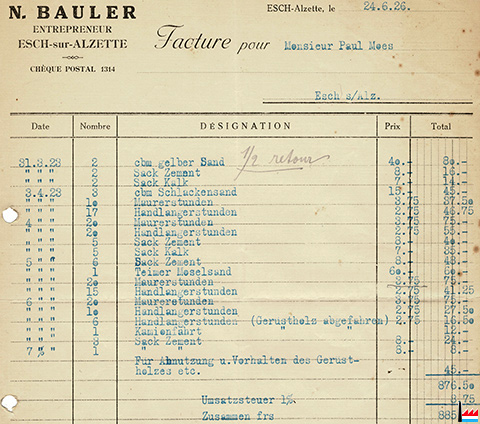 N. BAULER
ENTREPRENEUR
ESCH-sur-ALZETTE
CHÈQUE POSTAL 1314
ESCH-Alzette, le 24.6.26.
Facture pour Monsieur Paul Moes
Esch s/Alz.
Date Nombre DÉSIGNATION Prix Total
31.3.23 2 cbm gelber Sand 40.- 80.-
" " " 2 Sack Zement 8.- 16.-
" " " 2 Sack Kalk 7.- 14.-
1/2 retour
3.4.23 3 cbm Schlackensand 15.- 45.-
" " " 10 Maurerstunden 3.75 37.50
" " " 17 Handlangerstunden 2.75 46.75
4 " " 20 Maurerstunden 3.75 75.-
" " " 20 Handlangerstunden 2.75 55.-
" " " 5 Sack Zement 8.- 40.-
" " " 5 Sack Kalk 7.- 35.-
5 " " 6 Sack Zement 8.- 48.-
" " " 1 Teimer Moselsand 60.- 60.-
" " " 20 Maurerstunden 3.75 75.-
" " " 15 Handlangerstunden 2.75 41.25
6 " " 20 Maurerstunden 3.75 75.-
" " " 10 Handlangerstunden 2.75 27.50
" " " 6 Handlangerstunden (Gerustholz abgefahren) 2.75 16.50
" " " 1 Kamionfahrt " " 12.-
" " " 3 Sack Zement 8.- 24.-
7 " " 1 " " 8.-
Für Abnutzung u.Vorhalten des Gerust-
holzes etc. 45.-
876.50
Umsatzsteuer 1% 8.75
Zusammen frs 885